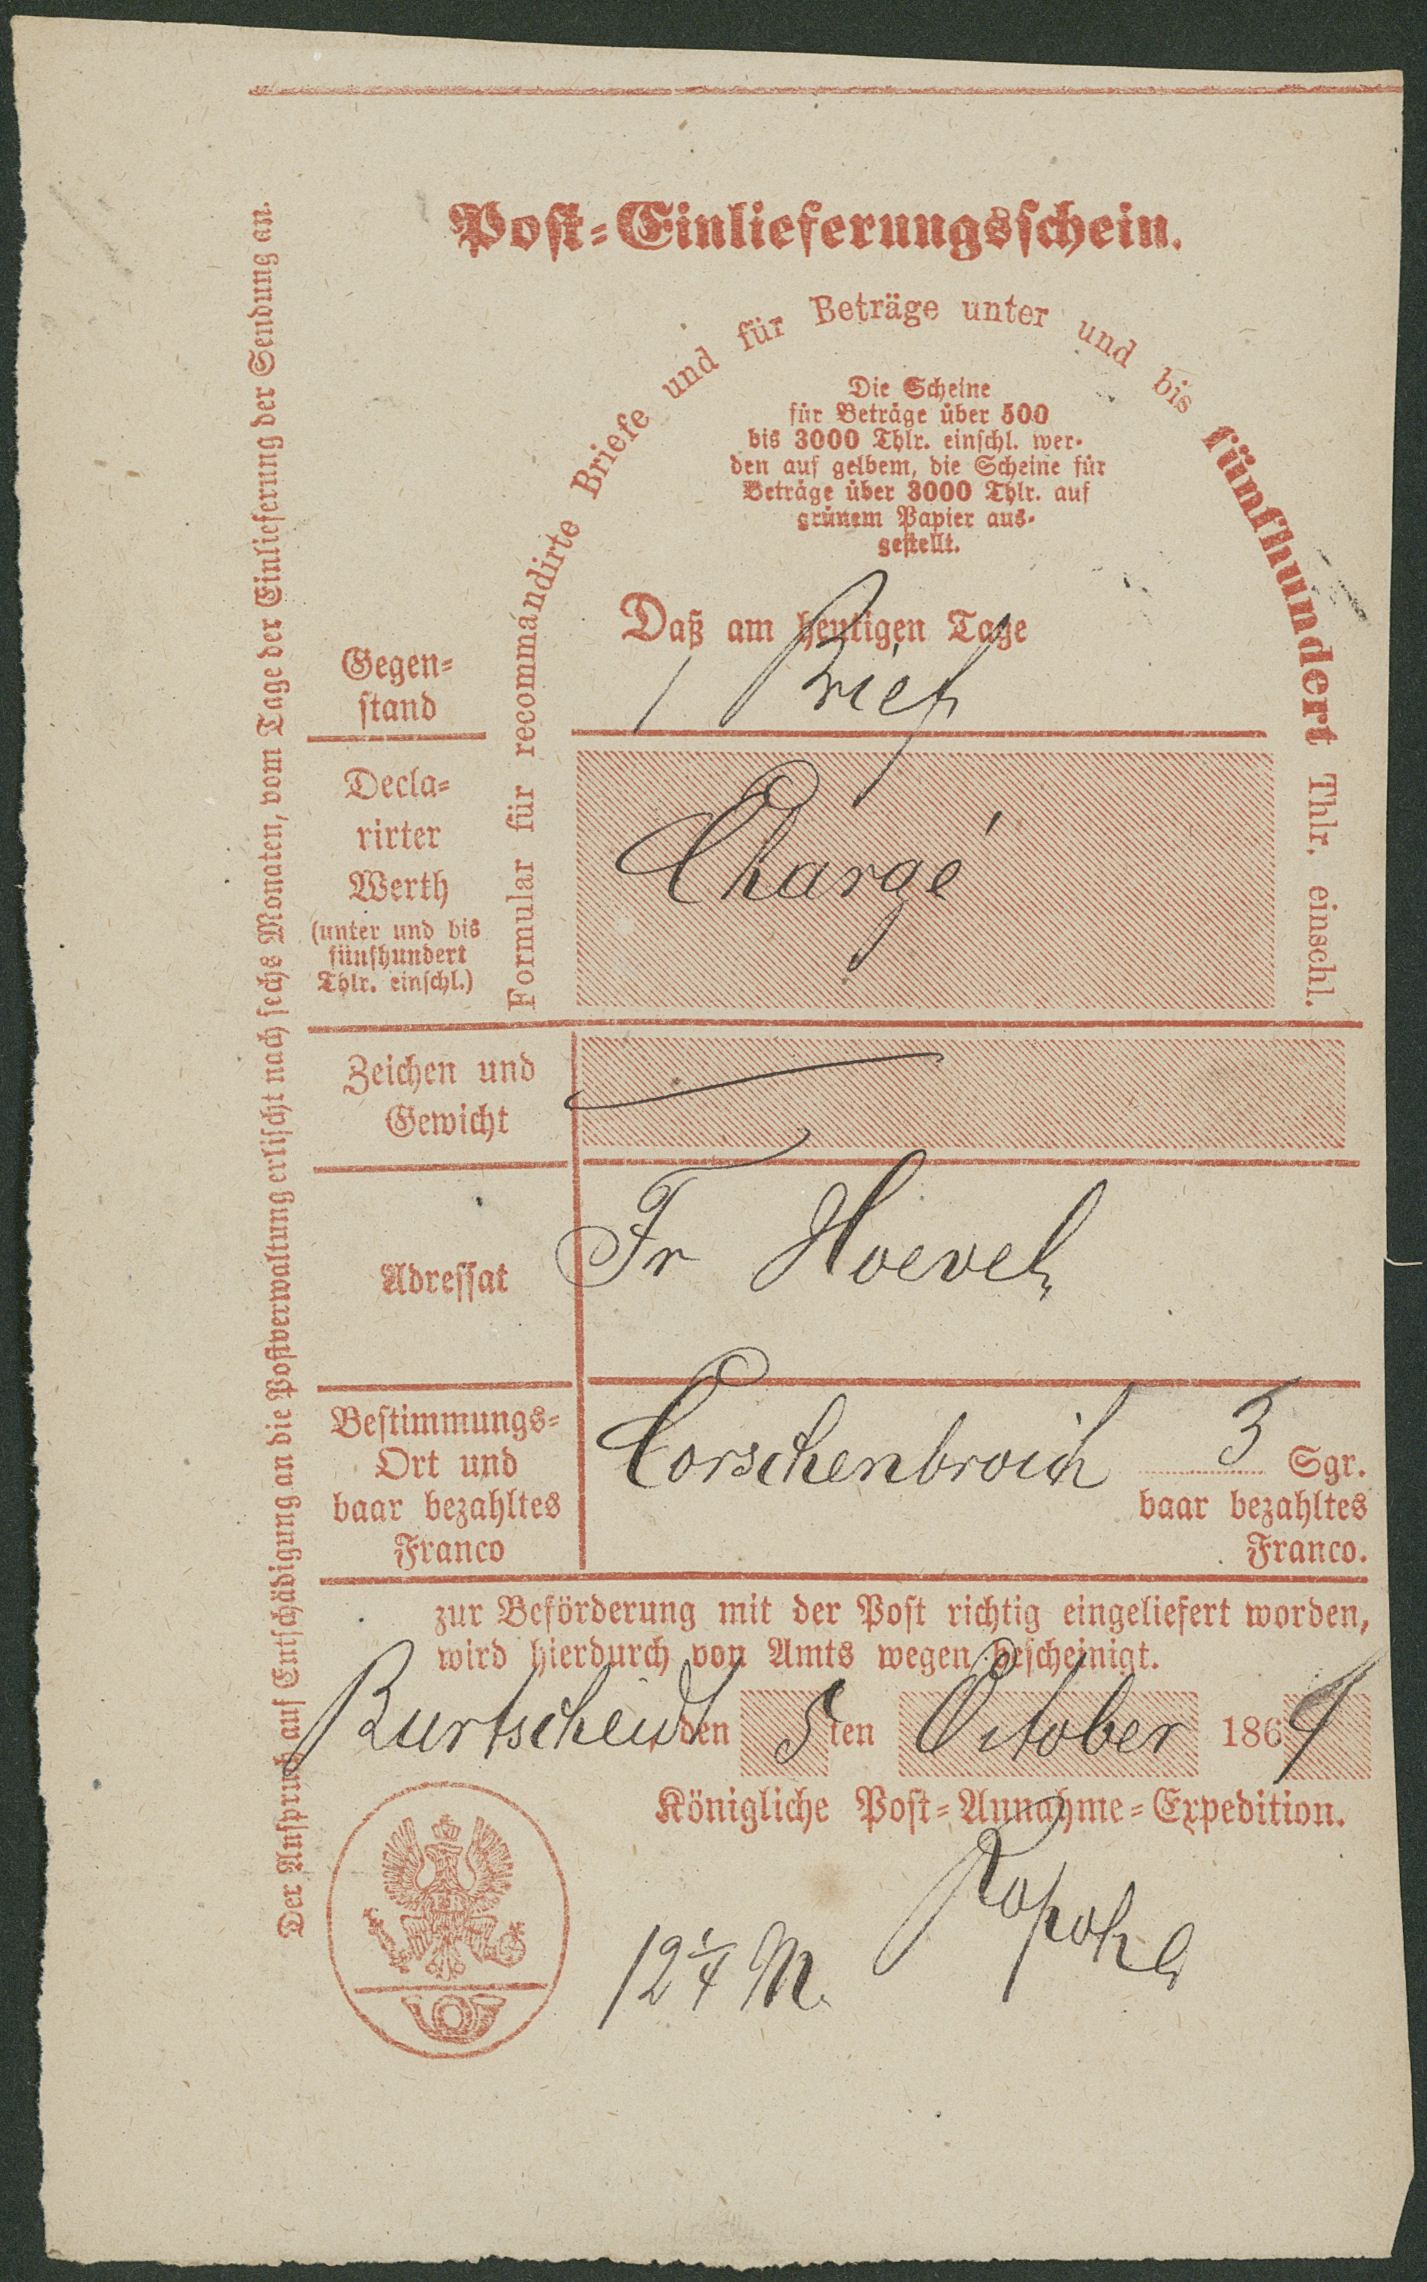 Post-Einlieferungsschein.
Formular für recommandirte Briefe und für Beträge unter und bis fünfhundert Thlr. einschl.
Die Scheine
für Beträge über 500
bis 3000 Thlr. einschl. wer-
den auf gelbem, die Scheine für
Beträge über 3000 Thlr. auf
grünem Papier aus-
gestellt.
Daß am heutigen Tage
Gegen-
stand
1 Brief
Decla-
rirter
Werth
(unter und bis
fünfhundert
Thlr. einschl.)
Chargé
Zeichen und
Gewicht
Adressat
Fr Hoevel,
Bestimmungs-
Ort und
baar bezahltes
Franco
Corschenbroich 3 Sgr.
baar bezahltes
Franco.
zur Beförderung mit der Post richtig eingeliefert worden,
wird hierdurch von Amts wegen bescheinigt.
Burtscheidt, den 5ten October 186
Königliche Post-Annahme-Expedition.
12 1/4 M.
Der Anspruch auf Entschädigung an die Postverwaltung erlischt nach sechs Monaten, vom Tage der Einlieferung der Sendung an.